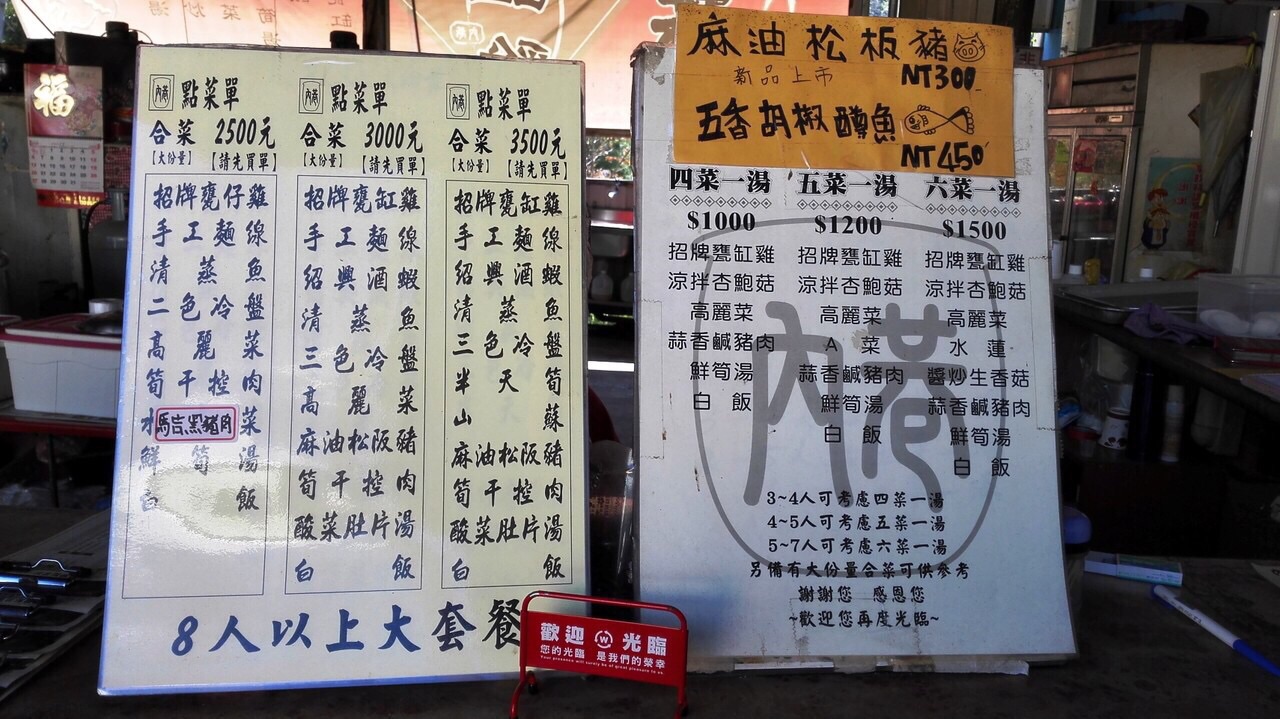 福
點菜單
合菜 2500元
【大份量】 【請先買單】
招牌甕仔雞
手工麵線
清蒸魚
二色冷盤
高麗菜
筍干控肉
水 菜
馬告黑豬肉
鮮筍湯
白飯
點菜單
合菜 3000元
【大份量】 【請先買單】
招牌甕缸雞
手工麵線
紹興酒蝦
清蒸魚
三色冷盤
高麗菜
麻油松阪豬
筍干控肉
酸菜肚片湯
白飯
點菜單
合菜 3500元
【大份量】 【請先買單】
招牌甕缸雞
手工麵線
紹興酒蝦
清蒸魚
三色冷盤
半天筍
山蘇
麻油松阪豬
筍干控肉
酸菜肚片湯
白飯
8人以上大套餐
麻油松板豬
新品上市 NT300
五香胡椒鱒魚
NT450
四菜一湯
$1000
招牌甕缸雞
涼拌杏鮑菇
高麗菜
蒜香鹹豬肉
鮮筍湯
白飯
五菜一湯
$1200
招牌甕缸雞
涼拌杏鮑菇
高麗菜
A菜
蒜香鹹豬肉
鮮筍湯
白飯
六菜一湯
$1500
招牌甕缸雞
涼拌杏鮑菇
高麗菜
水蓮
醬炒生香菇
蒜香鹹豬肉
鮮筍湯
白飯
內巷
3~4人可考慮四菜一湯
4~5人可考慮五菜一湯
5~7人可考慮六菜一湯
另備有大份量合菜可供參考
謝謝您 感恩您
~歡迎您再度光臨~
歡迎 光臨
您的光臨 是我們的榮幸
Your presence will surely be of great pleasure to us.